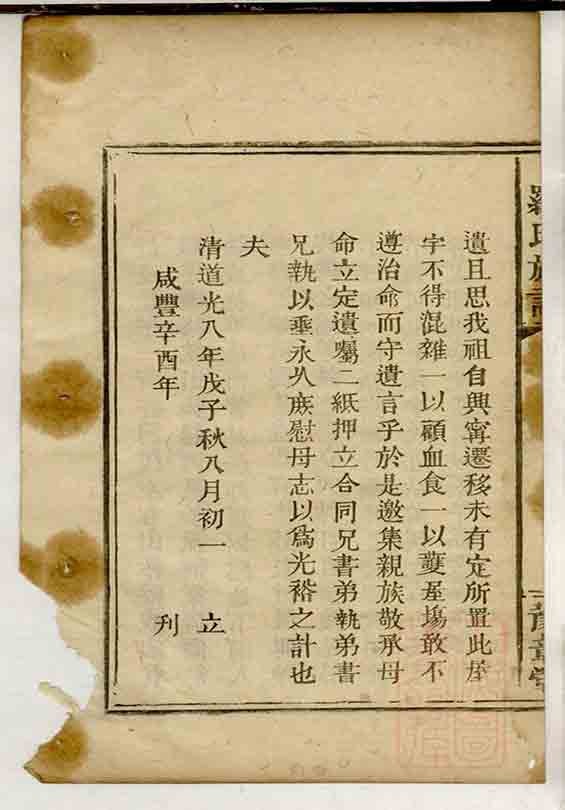 羅氏族譜
遺且思我祖自興甯遷移未有定所置此屋
宇不得混雜一以顧血食一以蕟屋塲敢不
遵治命而守遺言乎於是邀集親族敬承母
命立定遺囑二紙押立合同兄書弟執弟書
兄執以垂永久庻慰母志以爲光裕之計也
夫
清道光八年戊子秋八月初一 立
咸豐辛酉年 刊